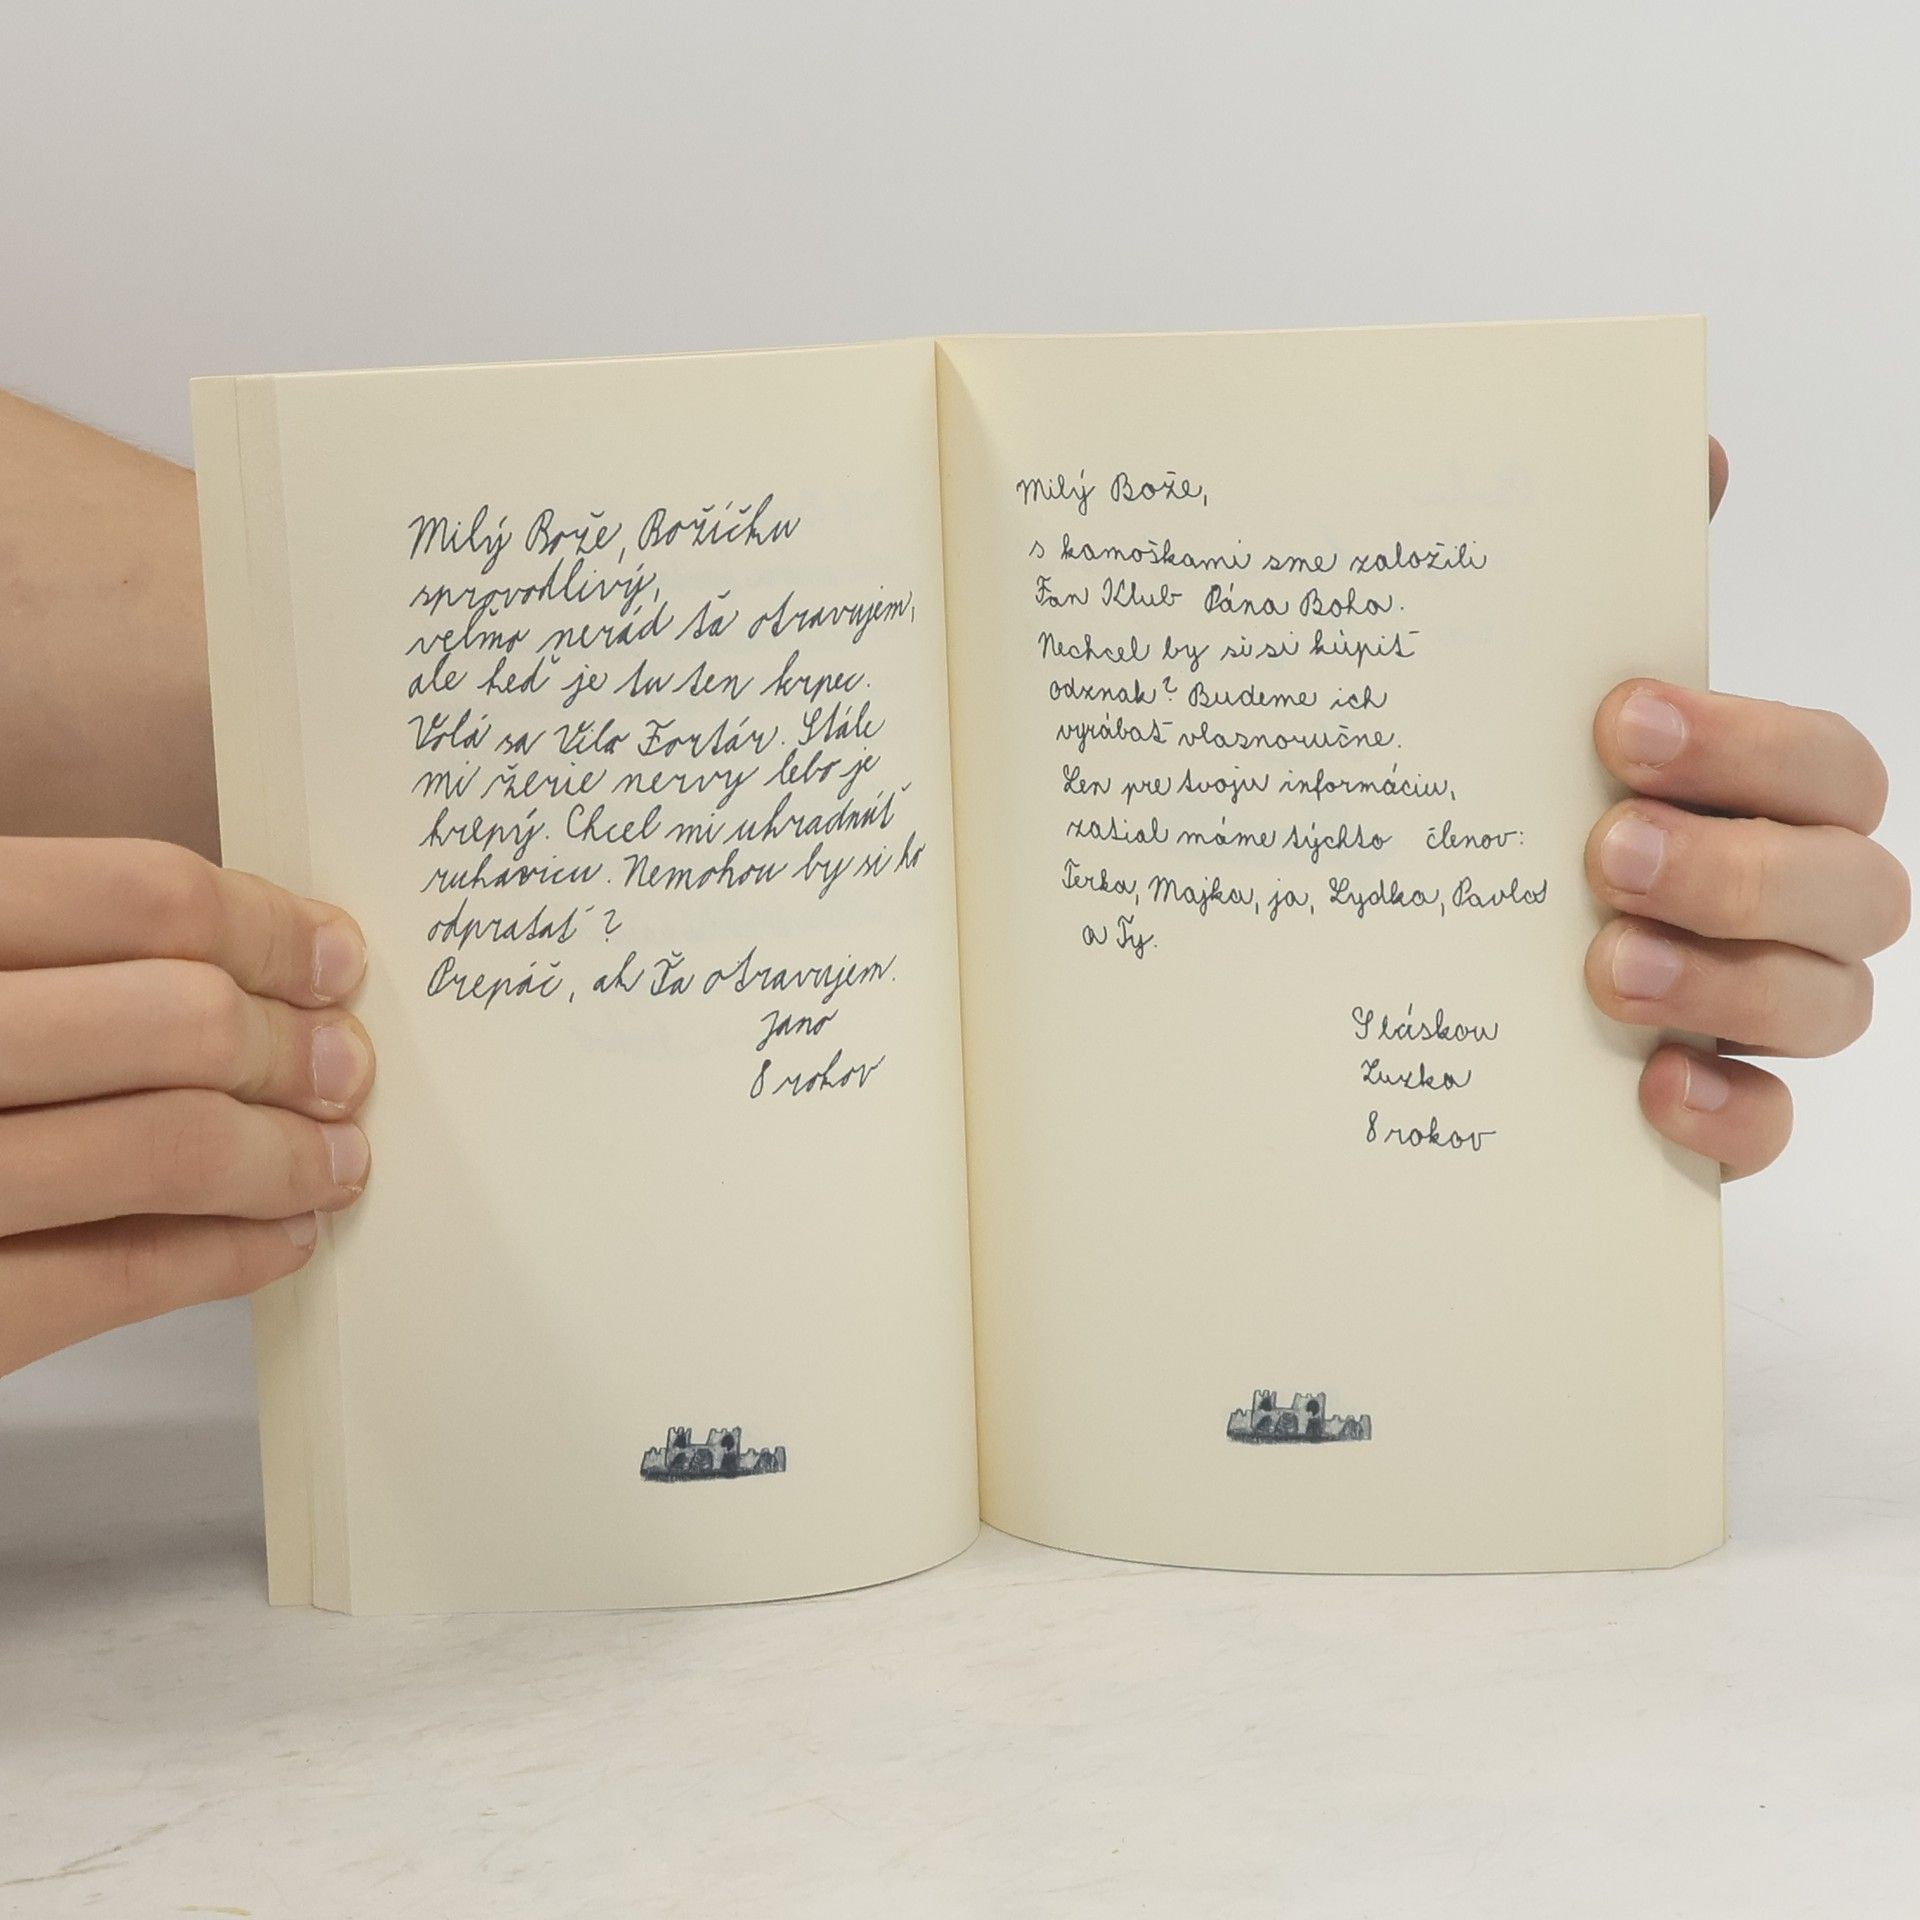 Milý Bože, Božíčku
sprovodlivý,
veľmo nerád ťa otravujem,
ale keď je tu ten krpec.
Volá sa Vilo Fortár. Stále
mi žerie nervy lebo je
krepý. Chcel mi ukradnúť
rukavicu. Nemohou by si ho
odpratať?
Prepáč, ak Ťa otravujem.
Jano
8 rokov
Milý Bože,
s kamoškami sme založili
Fan Klub Pána Boha.
Nechcel by si si kúpiť
odznak? Budeme ich
vyrábať vlasnoručne.
Len pre tvoju informáciu,
zatial máme týchto členov:
Terka, Majka, ja, Lydka, Pavla
a Ty.
S láskou
Zuzka
8 rokov